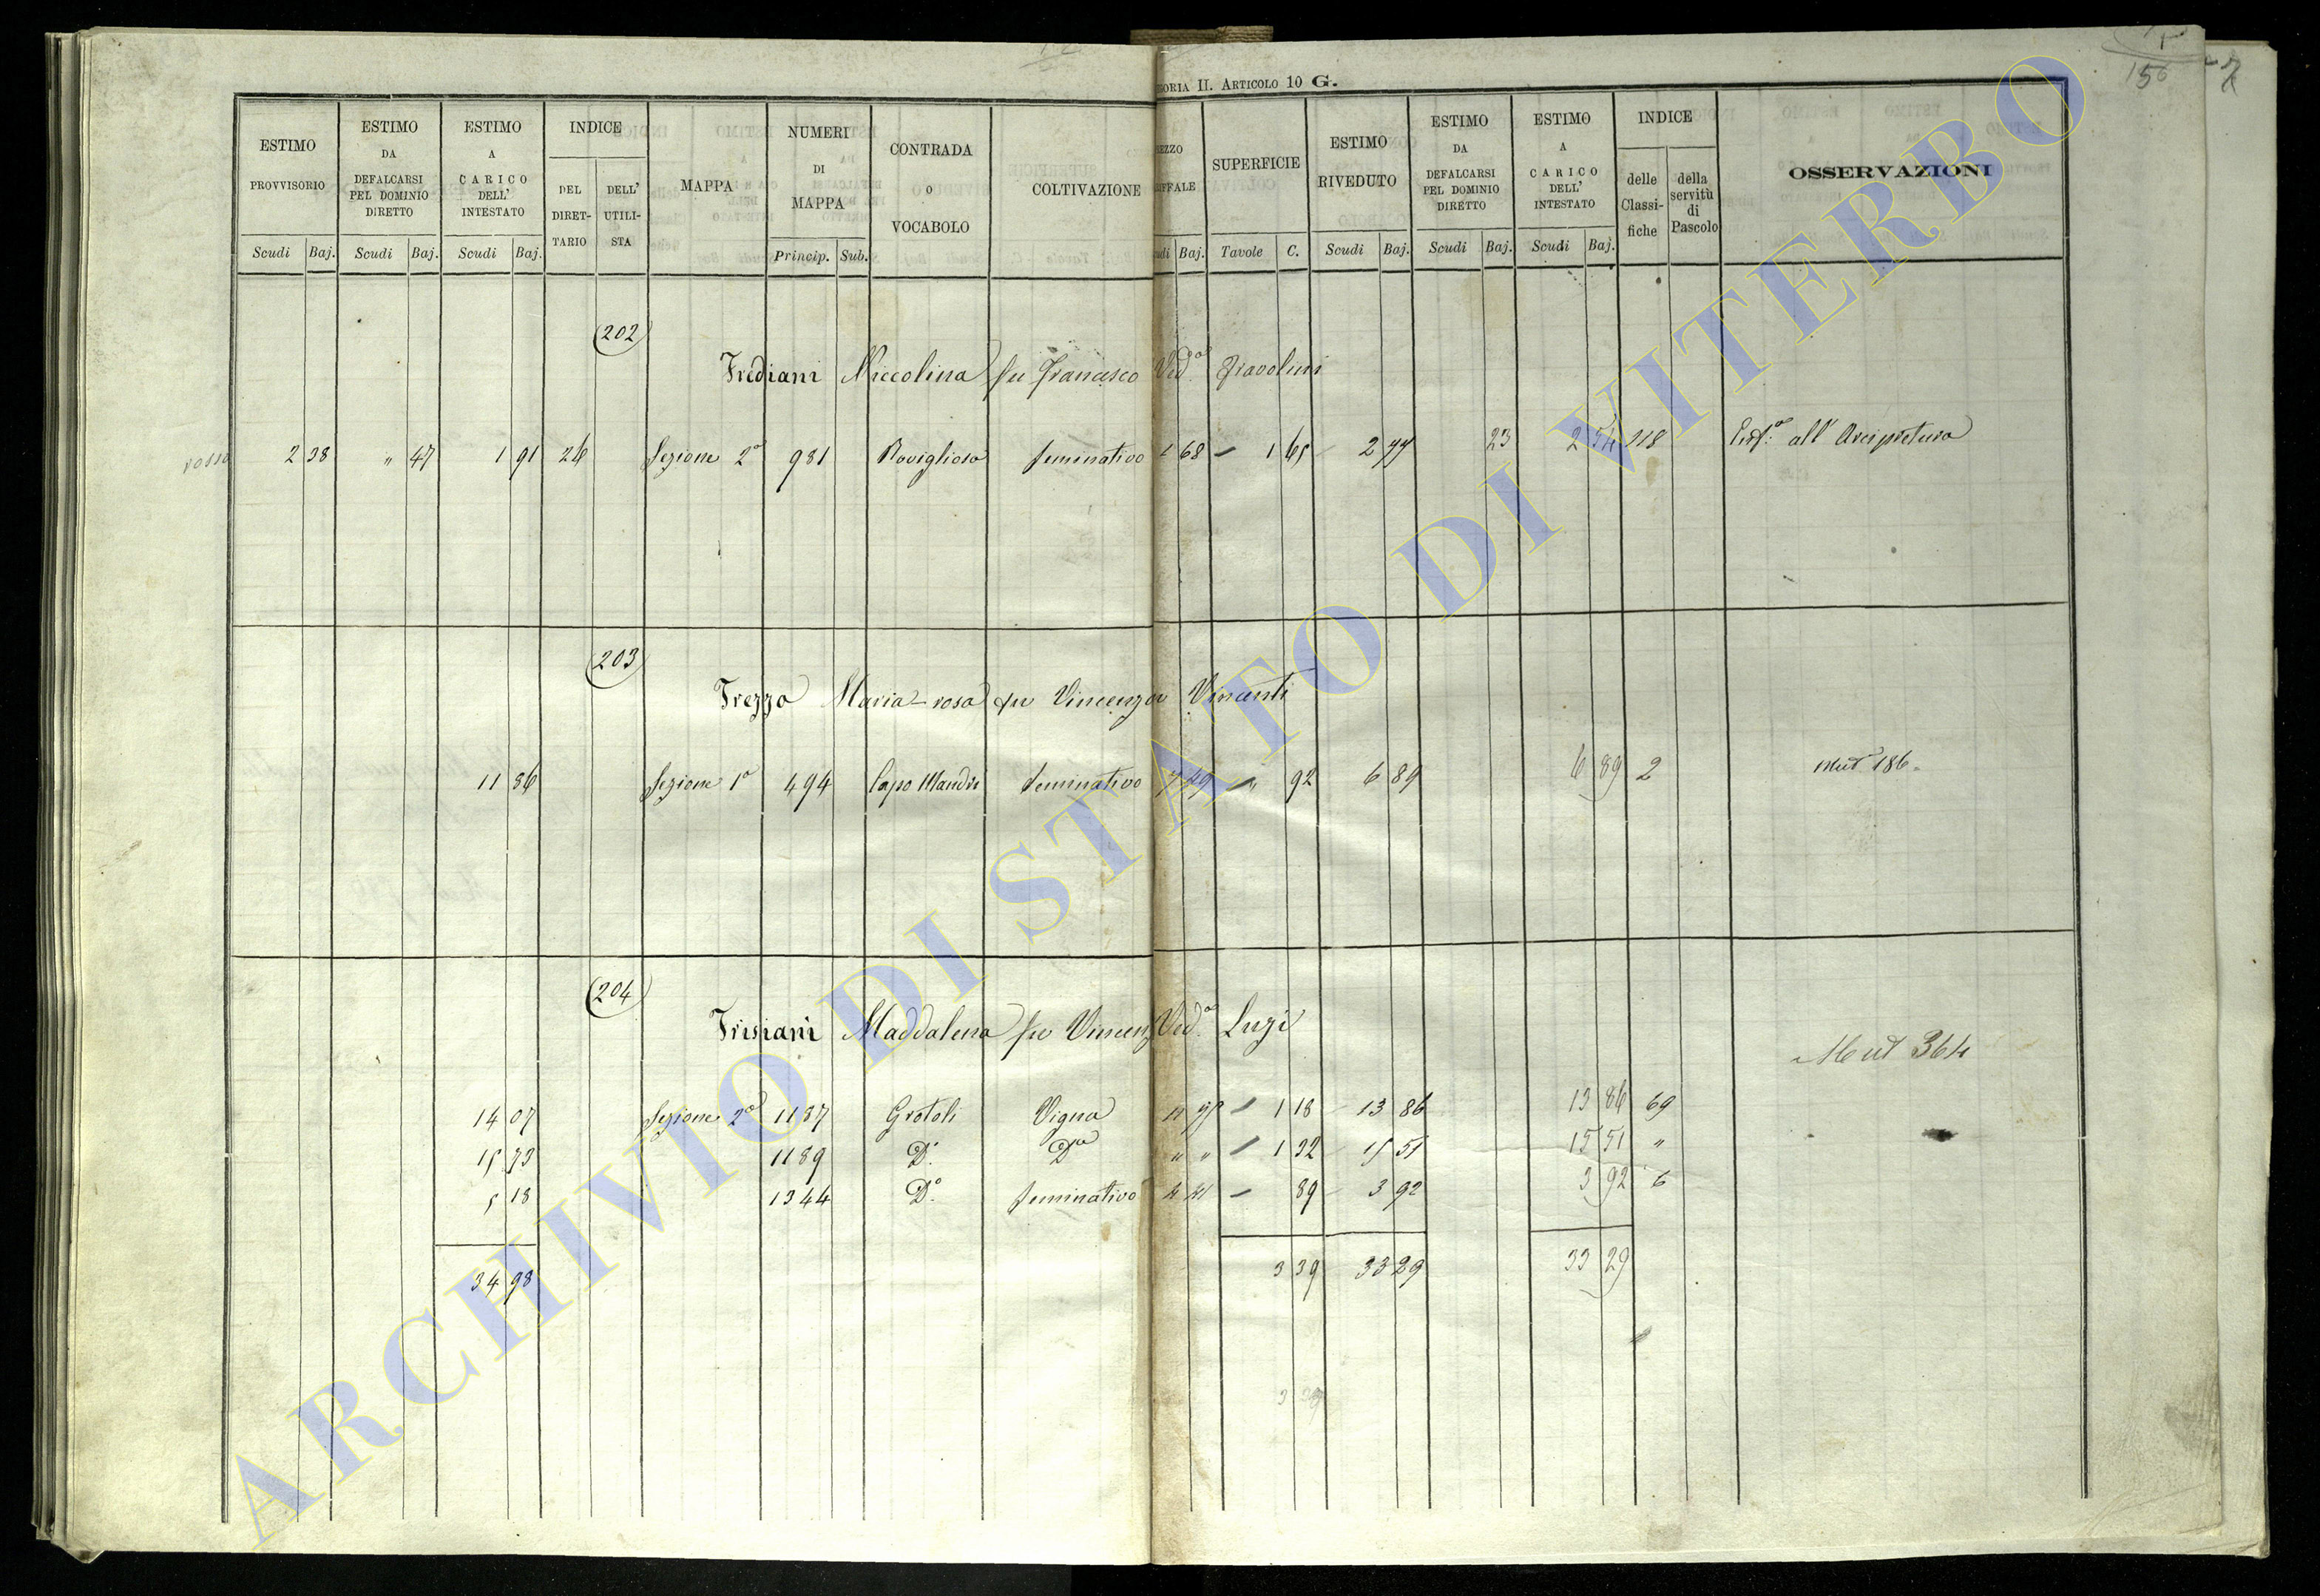 ORIA II. ARTICOLO 10 G.
156
ESTIMO PROVVISORIO
ESTIMO DA DEFALCARSI PEL DOMINIO DIRETTO
ESTIMO A CARICO DELL' INTESTATO
INDICE
DEL DIRET-TARIO
DELL' UTILI-STA
MAPPA
NUMERI DI MAPPA
CONTRADA O VOCABOLO
COLTIVAZIONE
SUPERFICIE
ESTIMO RIVEDUTO
ESTIMO DA DEFALCARSI PEL DOMINIO DIRETTO
ESTIMO A CARICO DELL' INTESTATO
INDICE
delle Classi-fiche
della servitù di Pascolo
OSSERVAZIONI
Scudi Baj. Scudi Baj. Scudi Baj. Princip. Sub. Baj. Tavole C. Scudi Baj. Scudi Baj. Scudi Baj.
(202)
Frediani Niccolina fu Francesco Ved.a Fravolini
rosso 2 38 " 47 1 91 26 Sezione 2a 981 Roviglioso Seminativo 1 68 1 65 2 77 23 2 54 218 Enf.a all' Arcipretura
(203)
Frezza Maria-rosa fu Vincenzo in Vincenti
11 86 Sezione 1a 494 Capo Mandre Seminativo 7 49 " 92 6 89 6 89 2 Mut 186
(204)
Frisiani Maddalena fu Vincenz Ved.a Luzi
Mut 364
14 07 Sezione 2a 1187 Grotoli Vigna 1 18 13 86 13 86 69
15 73 1189 D.o Da " " 1 32 15 51 15 51 "
5 18 1344 D.o Seminativo 4 41 89 3 92 3 92 6
34 98 3 39 33 29 33 29
3 39
ARCHIVIO DI STATO DI VITERBO